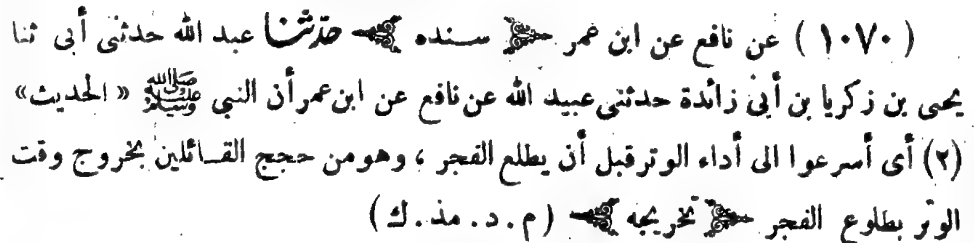 ( ١٠٧٠ ) عن نافع عن ابن عمر ﴿ سنده ﴾ حدّثنا عبد الله حدثنى أبى ثنا
يحيى بن زكريا بن أبى زائدة حدثنى عبيد الله عن نافع عن ابن عمر أن النبي ﷺ « الحديث»
(٢) أى أسرعوا الى أداء الوتر قبل أن يطلع الفجر ، وهو من حجج القائلين بخروج وقت
الوتر بطلوع الفجر ﴿ تخريجه ﴾ ( م . د . مذ . ك )